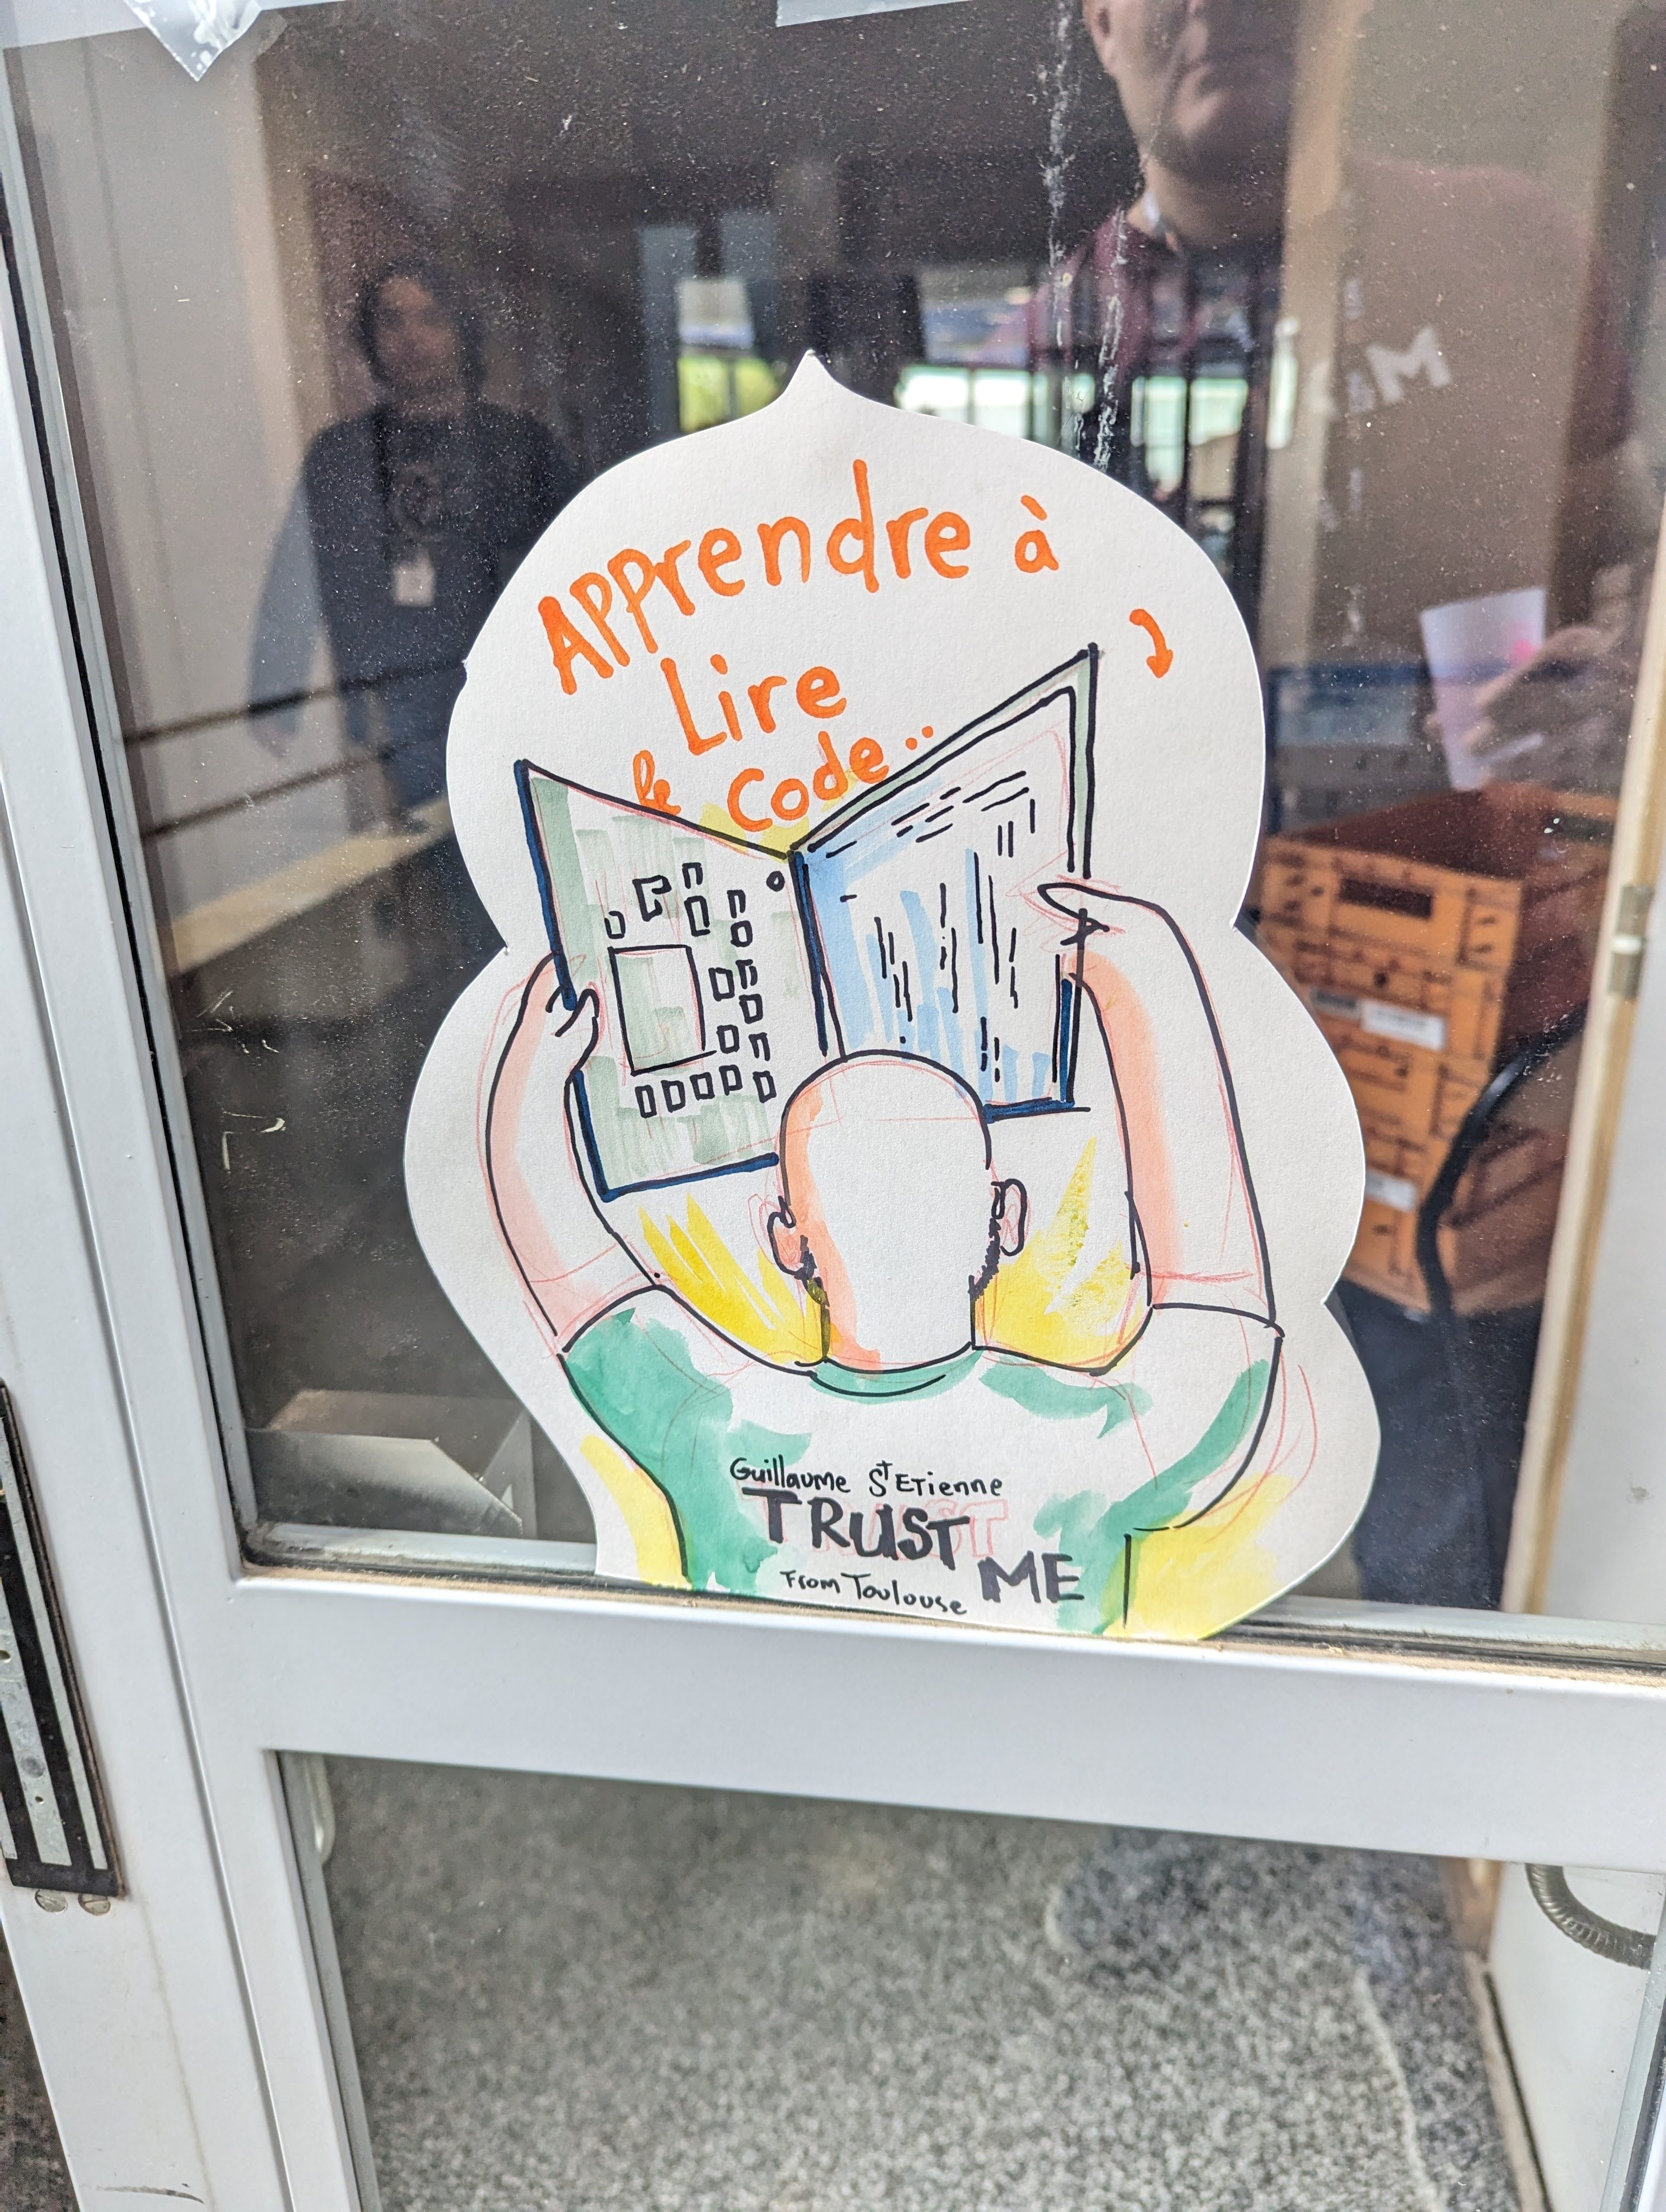 Apprendre à
Lire
le Code..
Guillaume St Etienne
TRUST
ME
From Toulouse